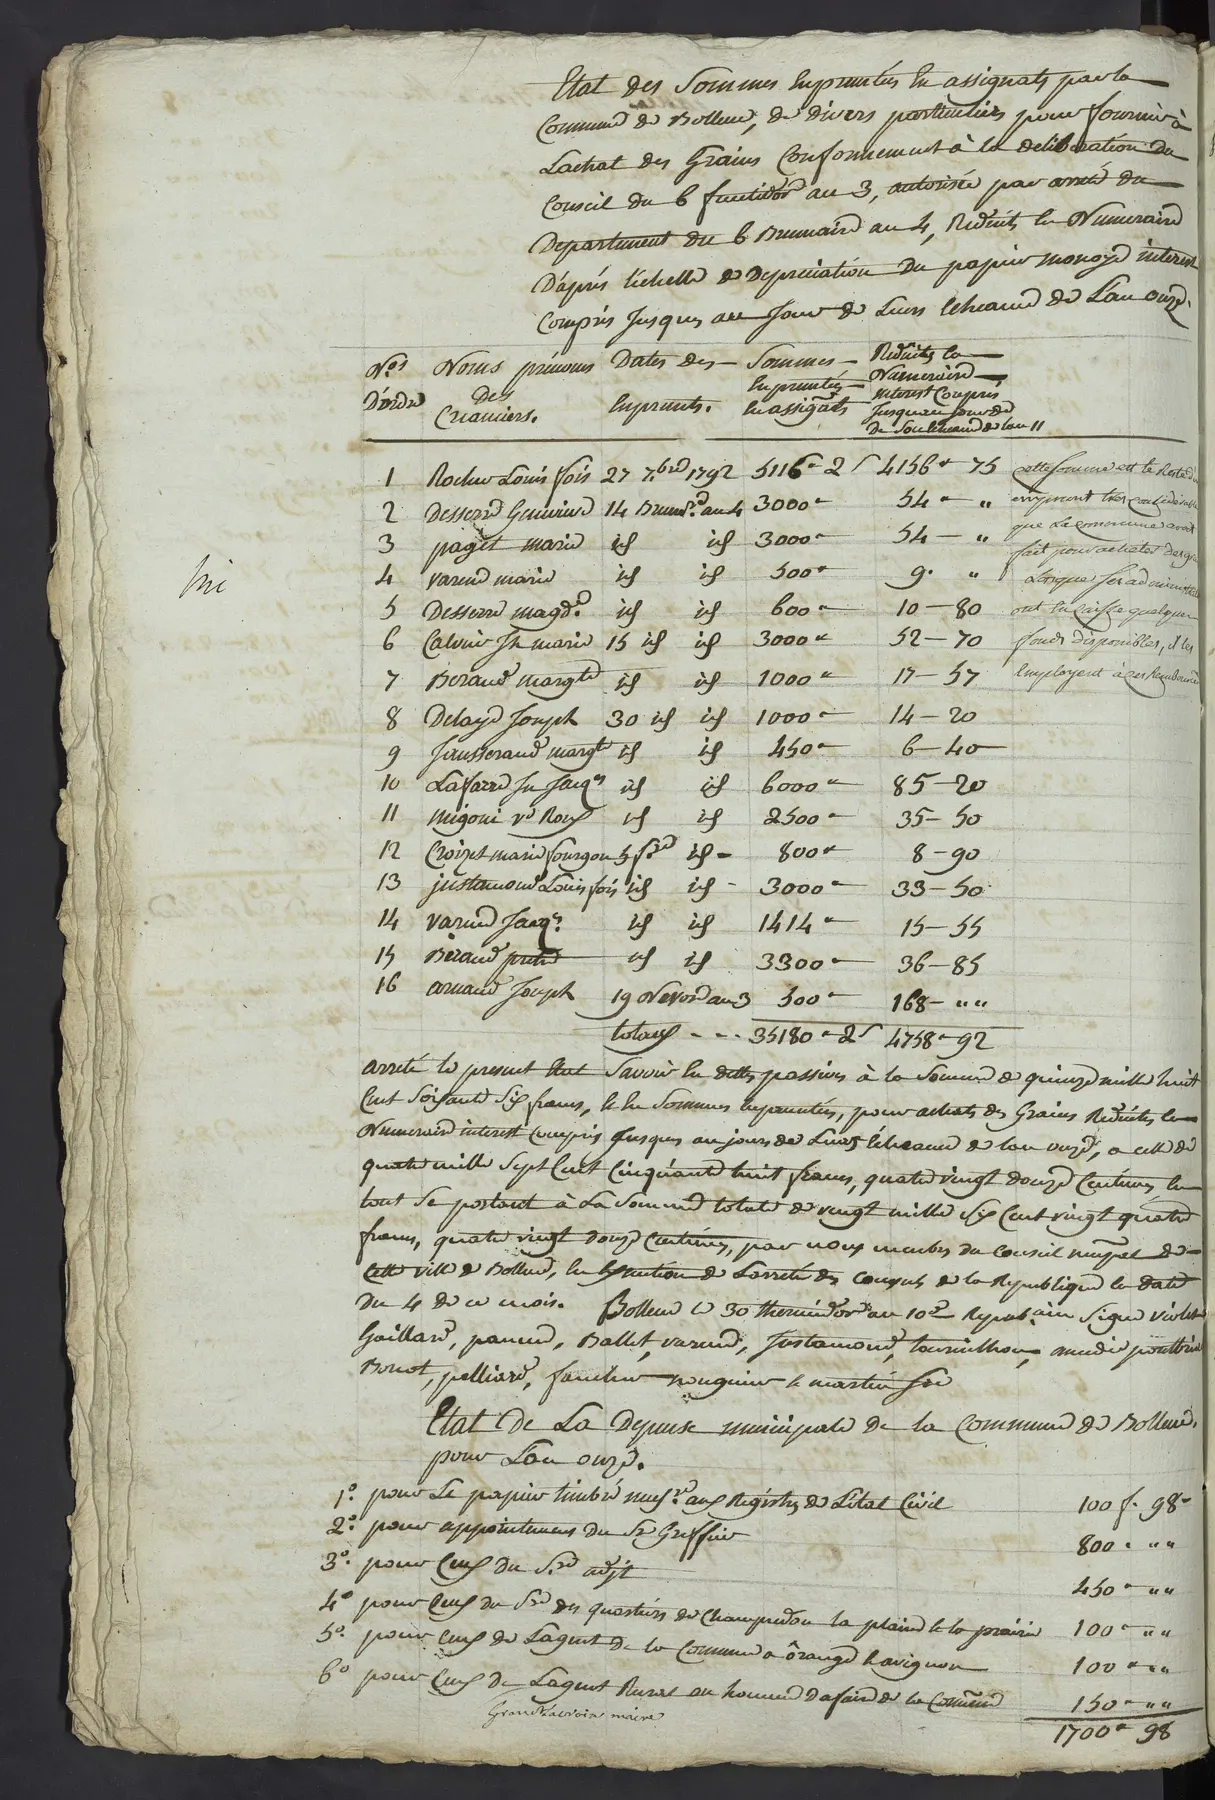 Etat des Sommes Empruntées En assignats par la
Commune de Bollene, de divers particuliers pour fournir à
Lachat des Grains Conformement à la deliberation du
Conseil du 6 fructidor an 3, autorisée par arreté du
Departement du 6 Brumaire an 4, Reduits En Numeraire
D'après l'echelle de Depreciation du papier monoye interest
Compris Jusques au Jour de Leurs Echeance de L'an onze.
Nos Noms prénoms Dates des Sommes Reduits En
D'ordre des Emprunts. Empruntées Numeraire
Creanciers. En assignats interest Compris
Jusqu'au jour de
de Son Echeance de l'an 11
1 Rocher Louis fois 27 7.bre 1792 5116 2 s 4156 75
2 Desserre Genevieve 14 Brum.re an 4 3000 54 "
3 pagès marie id id 3000 54 - "
4 varene marie id id 500 9. "
5 Desserre magd.e id id 600 10 - 80
6 Calvier Jh marie 15 id id 3000 52 - 70
7 Beraud margte id id 1000 17 - 57
8 Delaye Joseph 30 id id 1000 14 - 20
9 Jausserand margte id id 450 6 - 40
10 Lafarre Jn Jacqs id id 6000 85 - 20
11 migoni ve Roux id id 2500 35 - 50
12 Croizet marie fourgon 5 f.re id - 800 8 - 90
13 justamond Louis fois id id - 3000 33 - 50
14 varene Jacq.s id id 1414 15 - 55
15 Béraud pretre id id 3300 36 - 85
16 arnaud Joseph 19 Nevose an 3 500 168 - " "
totaux - - - 35180 2 s 4758 - 92
Cette somme est le Reste d'un
emprunt tres considerable
que La commune avoit
fait pour acheter des grains
Lorsque Les administrateurs
ont En caisse quelques
fonds disponibles, il les
Employent à ces Remboursements
fri
arreté le present Etat Savoir En dettes passives à la Somme de quinze mille huit
Cent Soixante Six francs, & En Sommes Empruntées, pour achats des Grains Reduites En
Numeraire interest Compris Jusques au jours de Leurs Echeance de l'an onze, a celle de
quatre mille Sept Cent Cinquante huit francs, quatre vingt douze Centimes En
tout Se portant à La Somme totale de vingt mille Six Cent vingt quatre
francs, quatre vingt douze Centimes, par nous membres du Conseil munpal de
Cette ville de Bollene, En Execution de L'arreté des Consuls de la Republique En date
du 4 de ce mois. Bollene le 30 thermidor an 10e Republicain Signé violet
Gaillard, Ballet, varene, Justamond, tourvillon,
pelliard, nouguier & martin fre
Etat de La Depense municipale de la Commune de Bollene
pour L'an onze.
1.° pour Le papier timbré necess.re aux Registres de L'etat Civil 100 f. 98
2.° pour appointemens du Se Greffier 800 . " "
3.° pour Ceux du S.re adjt 450 " "
4° pour Ceux du S.re des quartiers de Champredon la plaine & la prairie 100 " "
5.° pour Ceux de L'agent de la Commune a Orange & avignon 100 " "
6° pour Ceux de L'agent Rural ou homme d'afaire de la Commune 150 " "
1700 98
Grand Lacroix maire